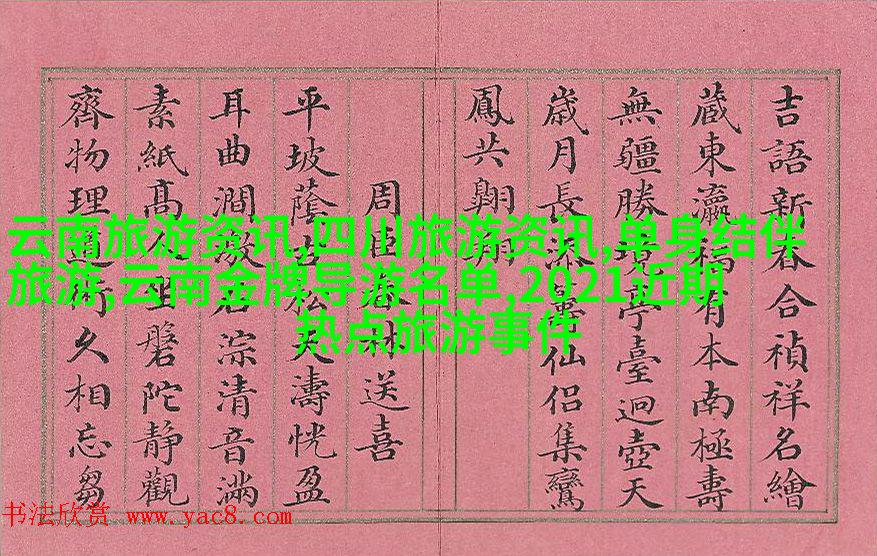 云南旅游资讯,四川旅游资讯,单身结伴
旅游,云南金牌导游名单,2021近期
热点旅游事件
吉語新春合禎祥名繪
蔵東瀛福有本南極壽
無疆勝境亭臺迴壺天
歲月長仙侶集鸞
鳳共翺翔
周送喜
平坡蔭古松天濤恍盈
耳曲澗激石淙清音滿
素紙高人坐磐陀靜觀
齊物理久相忘芻
书法欣赏 www.yac8.com